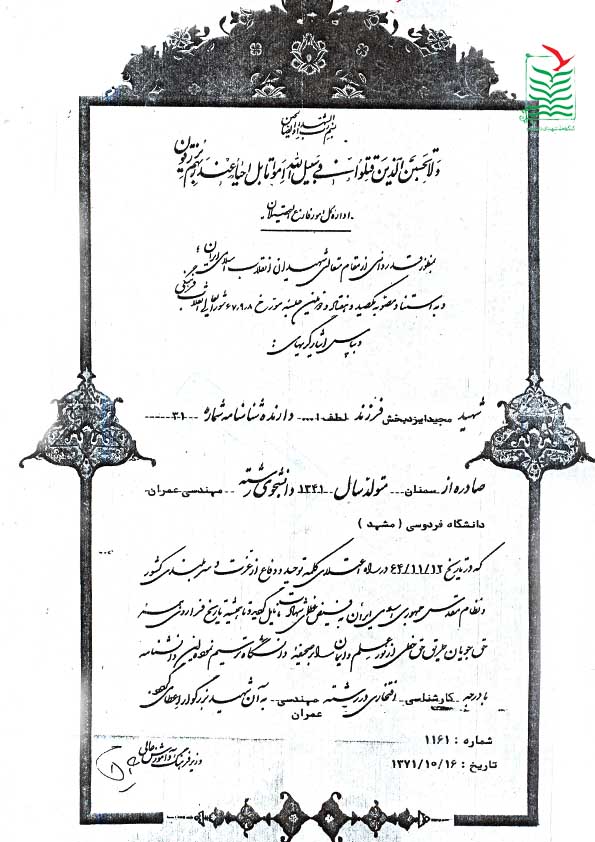 بسم رب الشهداء و الصالحین
ولا تحسبن الذین قتلوا فی سبیل الله امواتا بل احیاء عند ربهم یرزقون
اداره کل امور فارغ التحصیلان
بمنظور قدردانی از مقام متعالی شهیدان انقلاب اسلامی ایران
و به استناد مصوبه یکصد و هفتاد و نهمین جلسه مورخ ۶۷٫۹٫۸ شورایعالی انقلاب فرهنگی
و بپاس ایثارگریهای :
شهید مجید ایزدبخش فرزند لطف ا... دارنده شناسنامه شماره ۳۰۱
صادره از سمنان متولد سال ۱۳۴۱ دانشجوی رشته مهندسی عمران
دانشگاه فردوسی ( مشهد )
که در تاریخ ۶۴/۱۱/۱۲ در راه اعتلای کلمه توحید و دفاع از عزت و سربلندی کشور
و نظام مقدس جمهوری اسلامی ایران به فیض عظمای شهادت نایل گردید و تا همیشه تاریخ فرا روی همه
حق جویان طریق حق خطی از نور علم و ایمان را بر صحیفه دانشگاه ترسیم نموده این دانشنامه
با درجه کارشناسی افتخاری در رشته مهندسی عمران به آن شهید بزرگوار اعطا میگردد.
شماره : ۱۱۶۱
تاریخ : ۱۳۷۱/۱۰/۱۶
وزیر فرهنگ و آموزش عالی